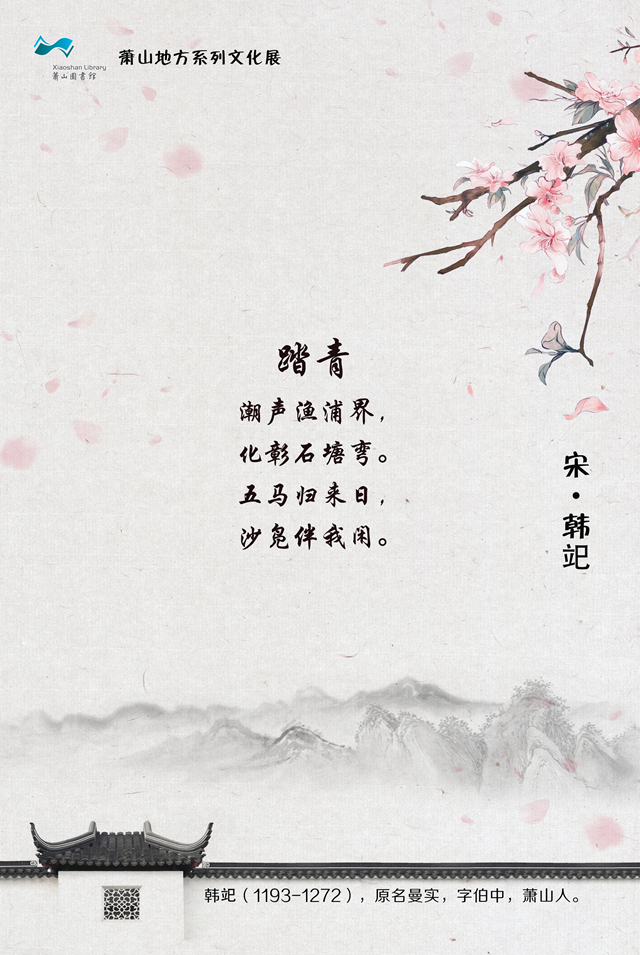 Xiaoshan Library
萧山圖書館
萧山地方系列文化展
踏青
潮声渔浦界，
化彰石塘弯。
五马归来日，
沙凫伴我闲。
宋·韩竑
韩竑（1193-1272），原名曼实，字伯中，萧山人。